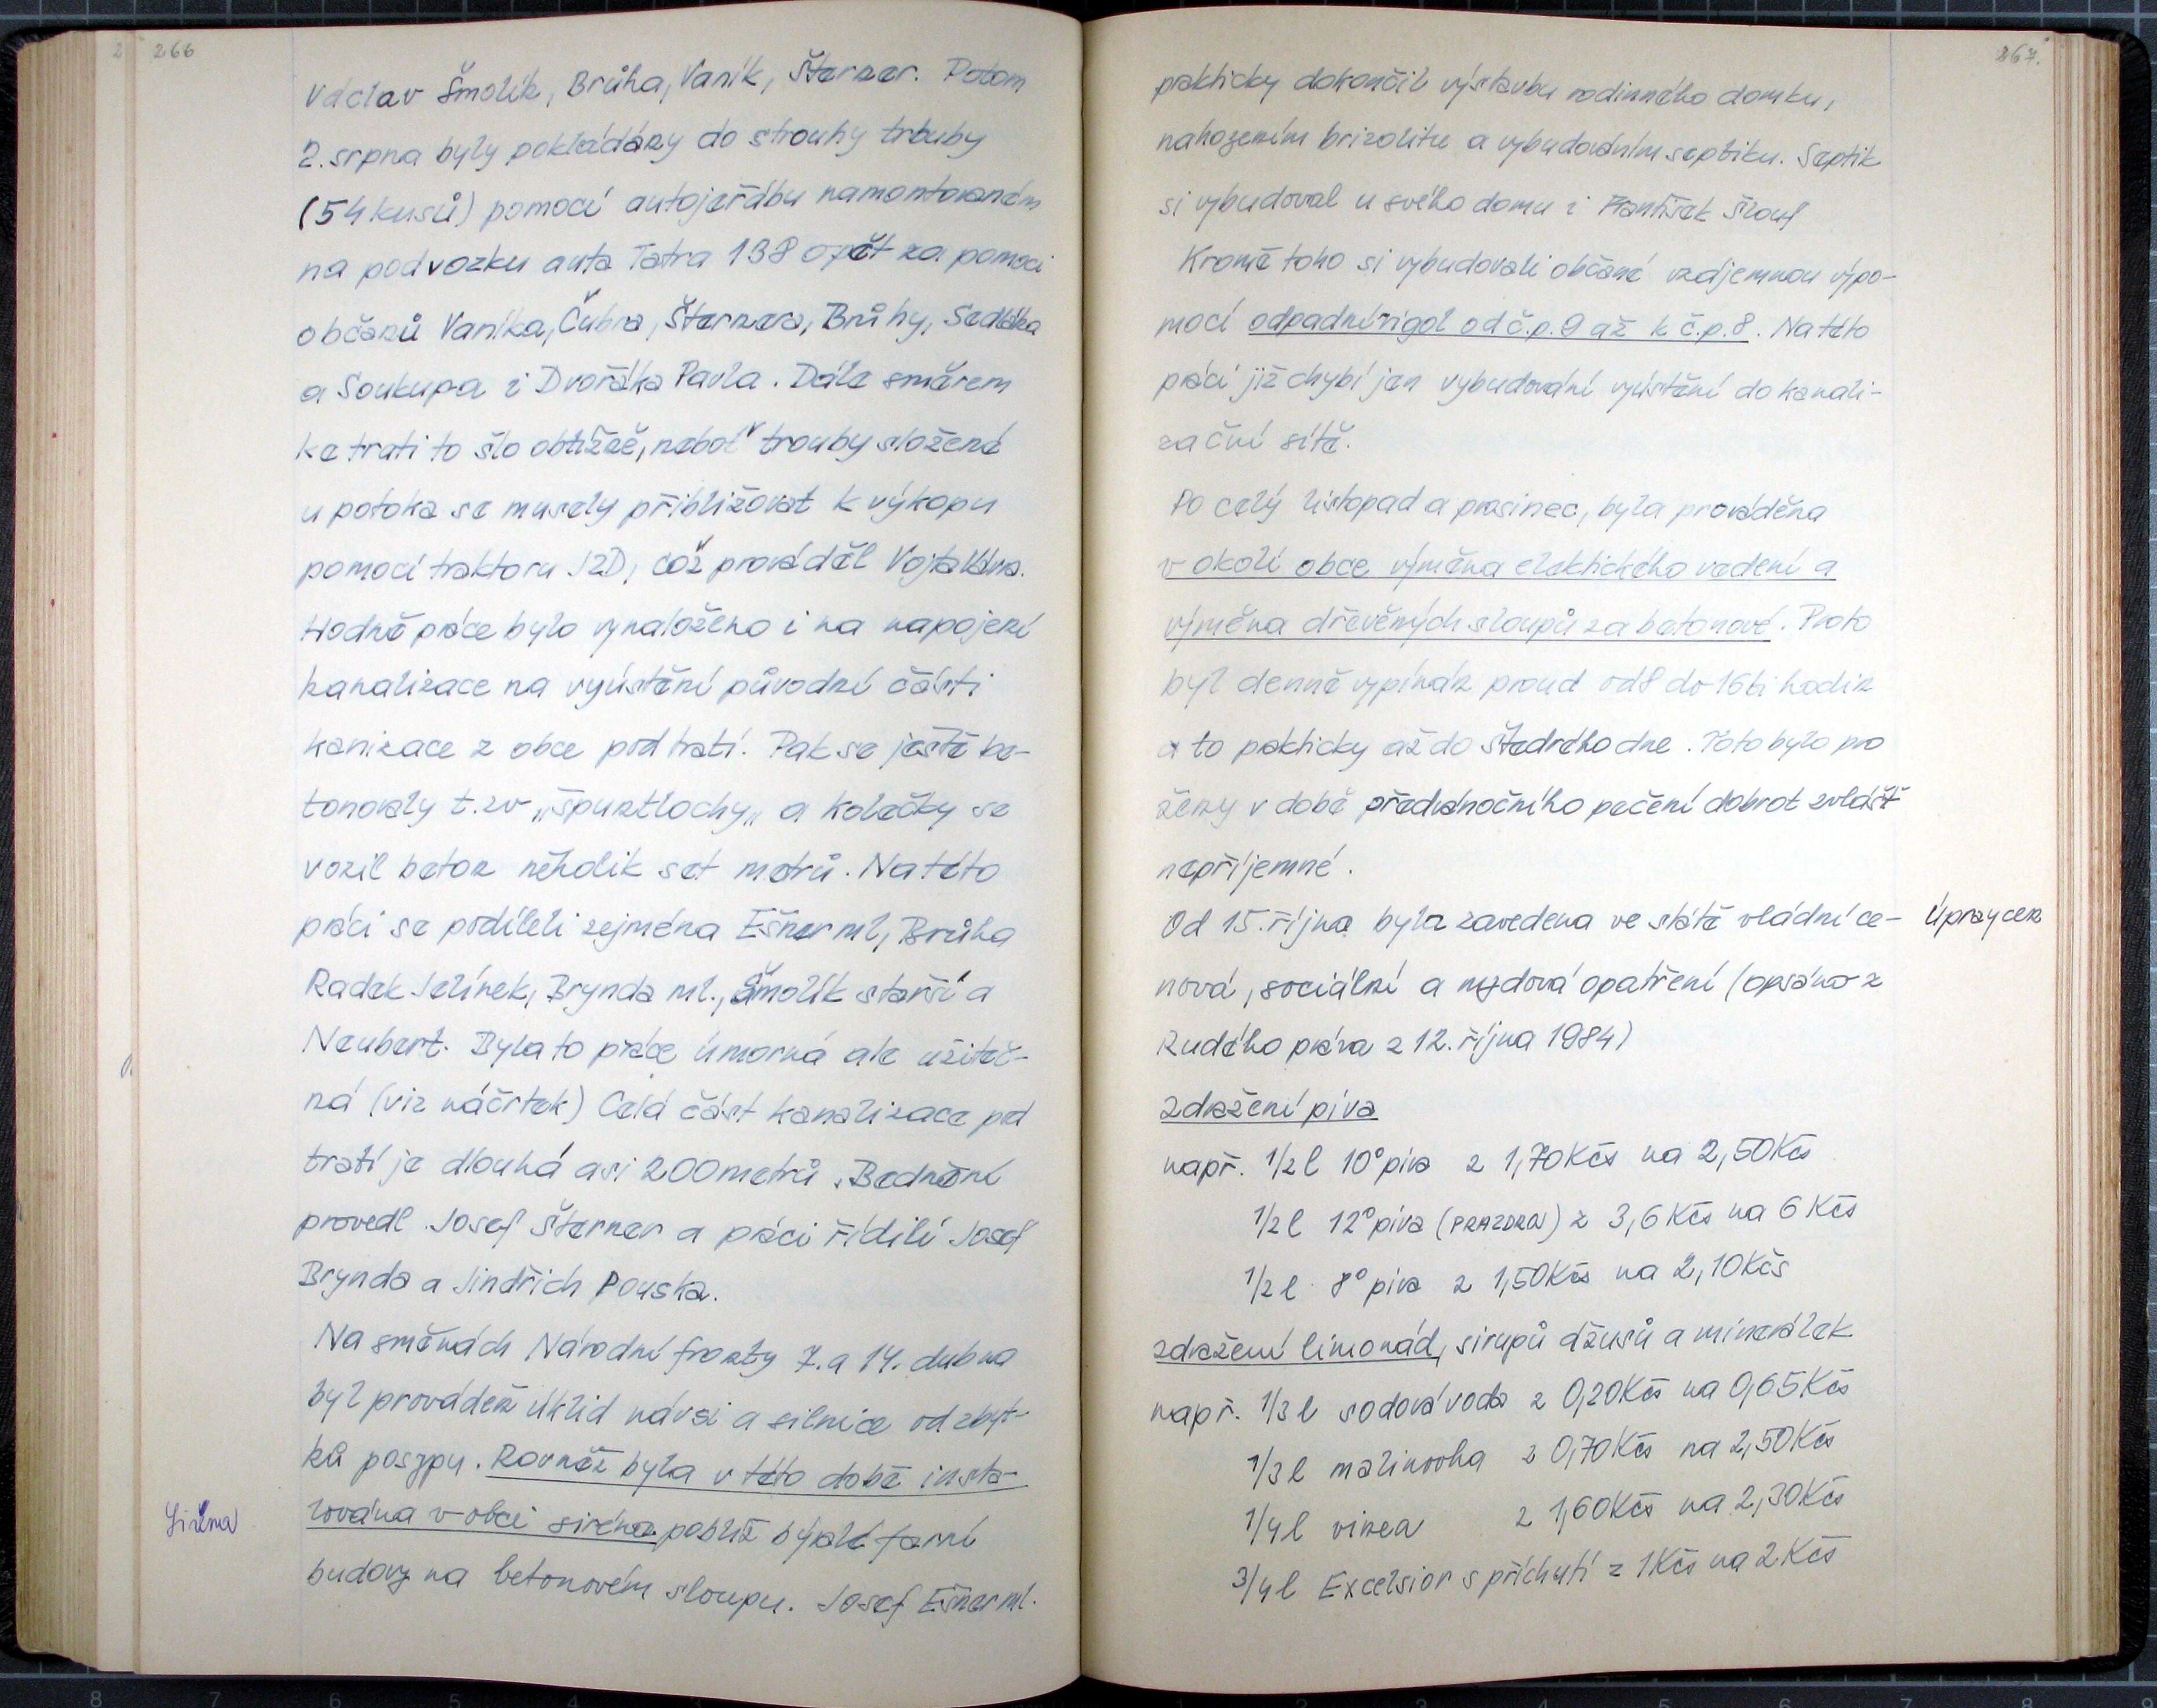 266
Václav Šmolík, Brůha, Vaník, Šterner. Potom
2. srpna byly pokládány do strouhy trouby
(54 kusů) pomocí autojeřábu namontovaném
na podvozku auta Tatra 138 opět za pomoci
občanů Vaníka, Čubra, Šternera, Brůhy, Sedláka
a Soukupa i Dvořáka Pavla. Dále směrem
ke trati to šlo obtížně, neboť trouby složené
u potoka se musely přibližovat k výkopu
pomocí traktoru JZD, což prováděl Vojta
Hodně práce bylo vynaloženo i na napojení
kanalizace na vyústění původní části
kanizace z obce pod tratí. Pak se ještě be-
tonovaly t.zv „špuntlochy„ a kolečky se
vozil beton několik set metrů. Na této
práci se podíleli zejména Ešner ml, Brůha
Radek Jelínek, Brynda ml., Šmolík starší a
Neubert. Byla to práce úmorná ale užiteč-
ná (viz náčrtek) Celá část kanalizace pod
tratí je dlouhá asi 200 metrů. Bednění
provedl Josef Šterner a práci řídili Josef
Brynda a Jindřich Pouska.
Na směnách Národní fronty 7. a 14. dubna
byl prováděn úklid návsi a silnice od zbyt-
ků posypu. Rovněž byla v této době insta-
Siréna
lována v obci siréna poblíž bývalé farní
budovy na betonovém sloupu. Josef Ešner ml.
267.
prakticky dokončil výstavbu rodinného domku,
nahozením brizolitu a vybudováním septiku. Septik
si vybudoval u svého domu i František Šlouf
Kromě toho si vybudovali občané vzájemnou výpo-
mocí odpadní rigol od č.p. 9 až k č.p. 8. Na této
práci již chybí jen vybudování vyústění do kanali-
zační sítě.
Po celý listopad a prosinec, byla prováděna
v okolí obce výměna elektického vedení a
výměna dřevěných sloupů za betonové. Proto
byl denně vypínán proud od 8 do 16ti hodin
a to prakticky až do Štedrého dne. Toto bylo pro
ženy v době předvánočního pečení dobrot zvlášť
nepříjemné.
Od 15. října byla zavedena ve státě vládní ce-
Úpravy cen
nová, sociální a mzdová opatření (opsáno z
Rudého práva z 12. října 1984)
zdražení piva
např. 1/2 l 10° piva z 1,70 Kčs na 2,50 Kčs
1/2 l 12° piva (PRAZDROJ) z 3,6 Kčs na 6 Kčs
1/2 l 8° piva z 1,50 Kčs na 2,10 Kčs
zdražení limonád, sirupů džusů a minerálek
např. 1/3 l sodová voda z 0,20 Kčs na 0,65 Kčs
1/3 l malinovka z 0,70 Kčs na 2,50 Kčs
1/4 l vinea z 1,60 Kčs na 2,30 Kčs
3/4 l Excelsior s příchutí z 1 Kčs na 2 Kčs